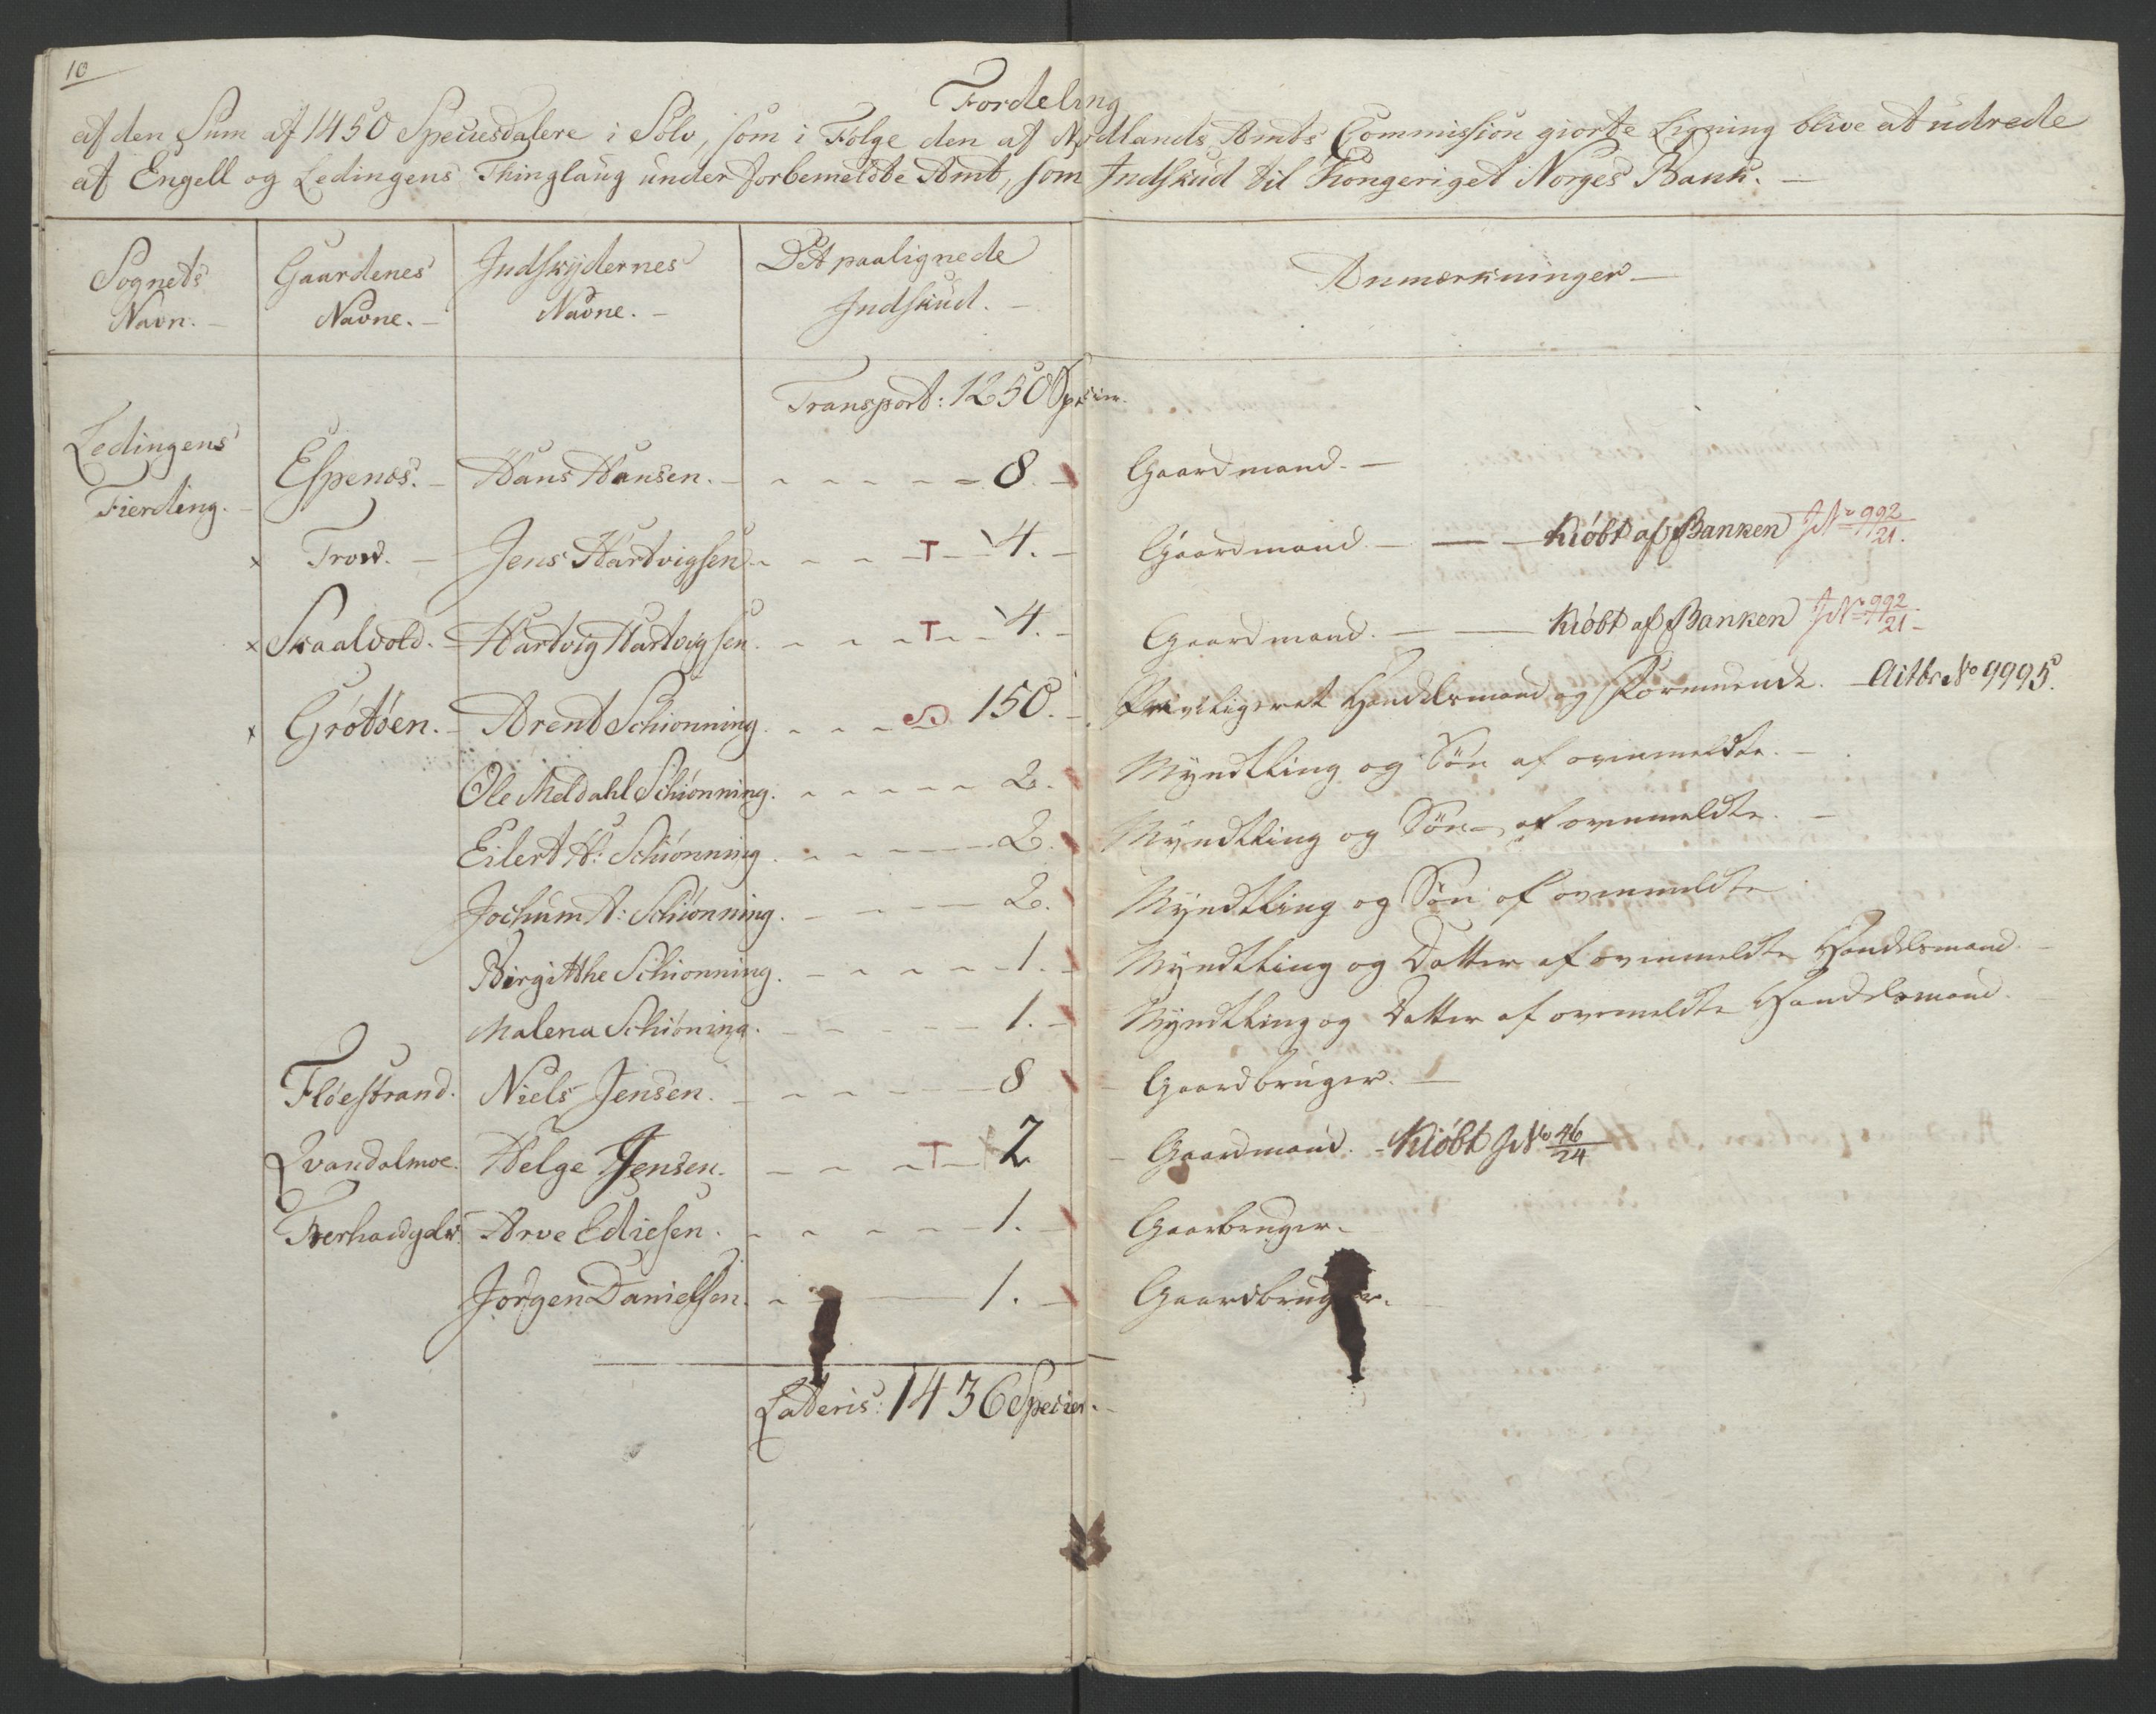 10
Fordeling
af den Sum af 1450 Speciesdalere i Sølv, som i Følge den af Nordlands Amts Commission giorte Ligning blive at udrede
af Engell og Lødingens Thinglaug under forbemeldte Amt, som Indskud til Kongeriget Norges Bank. —
Sognets Navn. — Gaardenes Navne. — Indskydernes Navne. — Det paalignede Indskud. — Anmærkninger —
Transport: 1250 Specier.
Lødingens Fierding. — Espenes. — Hans Hansen. — 8. — Gaardmand. —
x Trow. — Jens Hartvigsen — T — 4. — Gaardmand. — Kiøbt af Banken JN° 992/21.
x Skaalvold. — Hartvig Hartvigsen. — T — 4. — Gaardmand. — Kiøbt af Banken JN° 992/21 —
x Grøtøen. — Arent Schiønning. 150. — Priviligeret Handelsmand og Formuende. — N° 9995.
Ole Meldahl Schiønning. 2. Myndtling og Søn af ovenmeldte. —
Eilert A: Schiønning. 2. Myndtling og Søn af ovenmeldte. —
Jochum A: Schiønning. 2. Myndtling og Søn af ovenmeldte
Birgitthe Schiønning. 1. Myndtling og Datter af ovenmeldte Handelsmand. —
Malena Schiøning. 1. — Myndtling og Datter af ovenmeldte Handelsmand.
Fløestrand. Niels Jensen. 8 — Gaardbruger. —
Qvandalmoe. Helge Jensen. — T — 2 — Gaardmand. — Kiøbt JN° 46/24
Arve Ediesen. 1. — Gaarbruger.
Jørgen Danielsen. 1. — Gaardbruger.
Lateris: 1436 Specier.